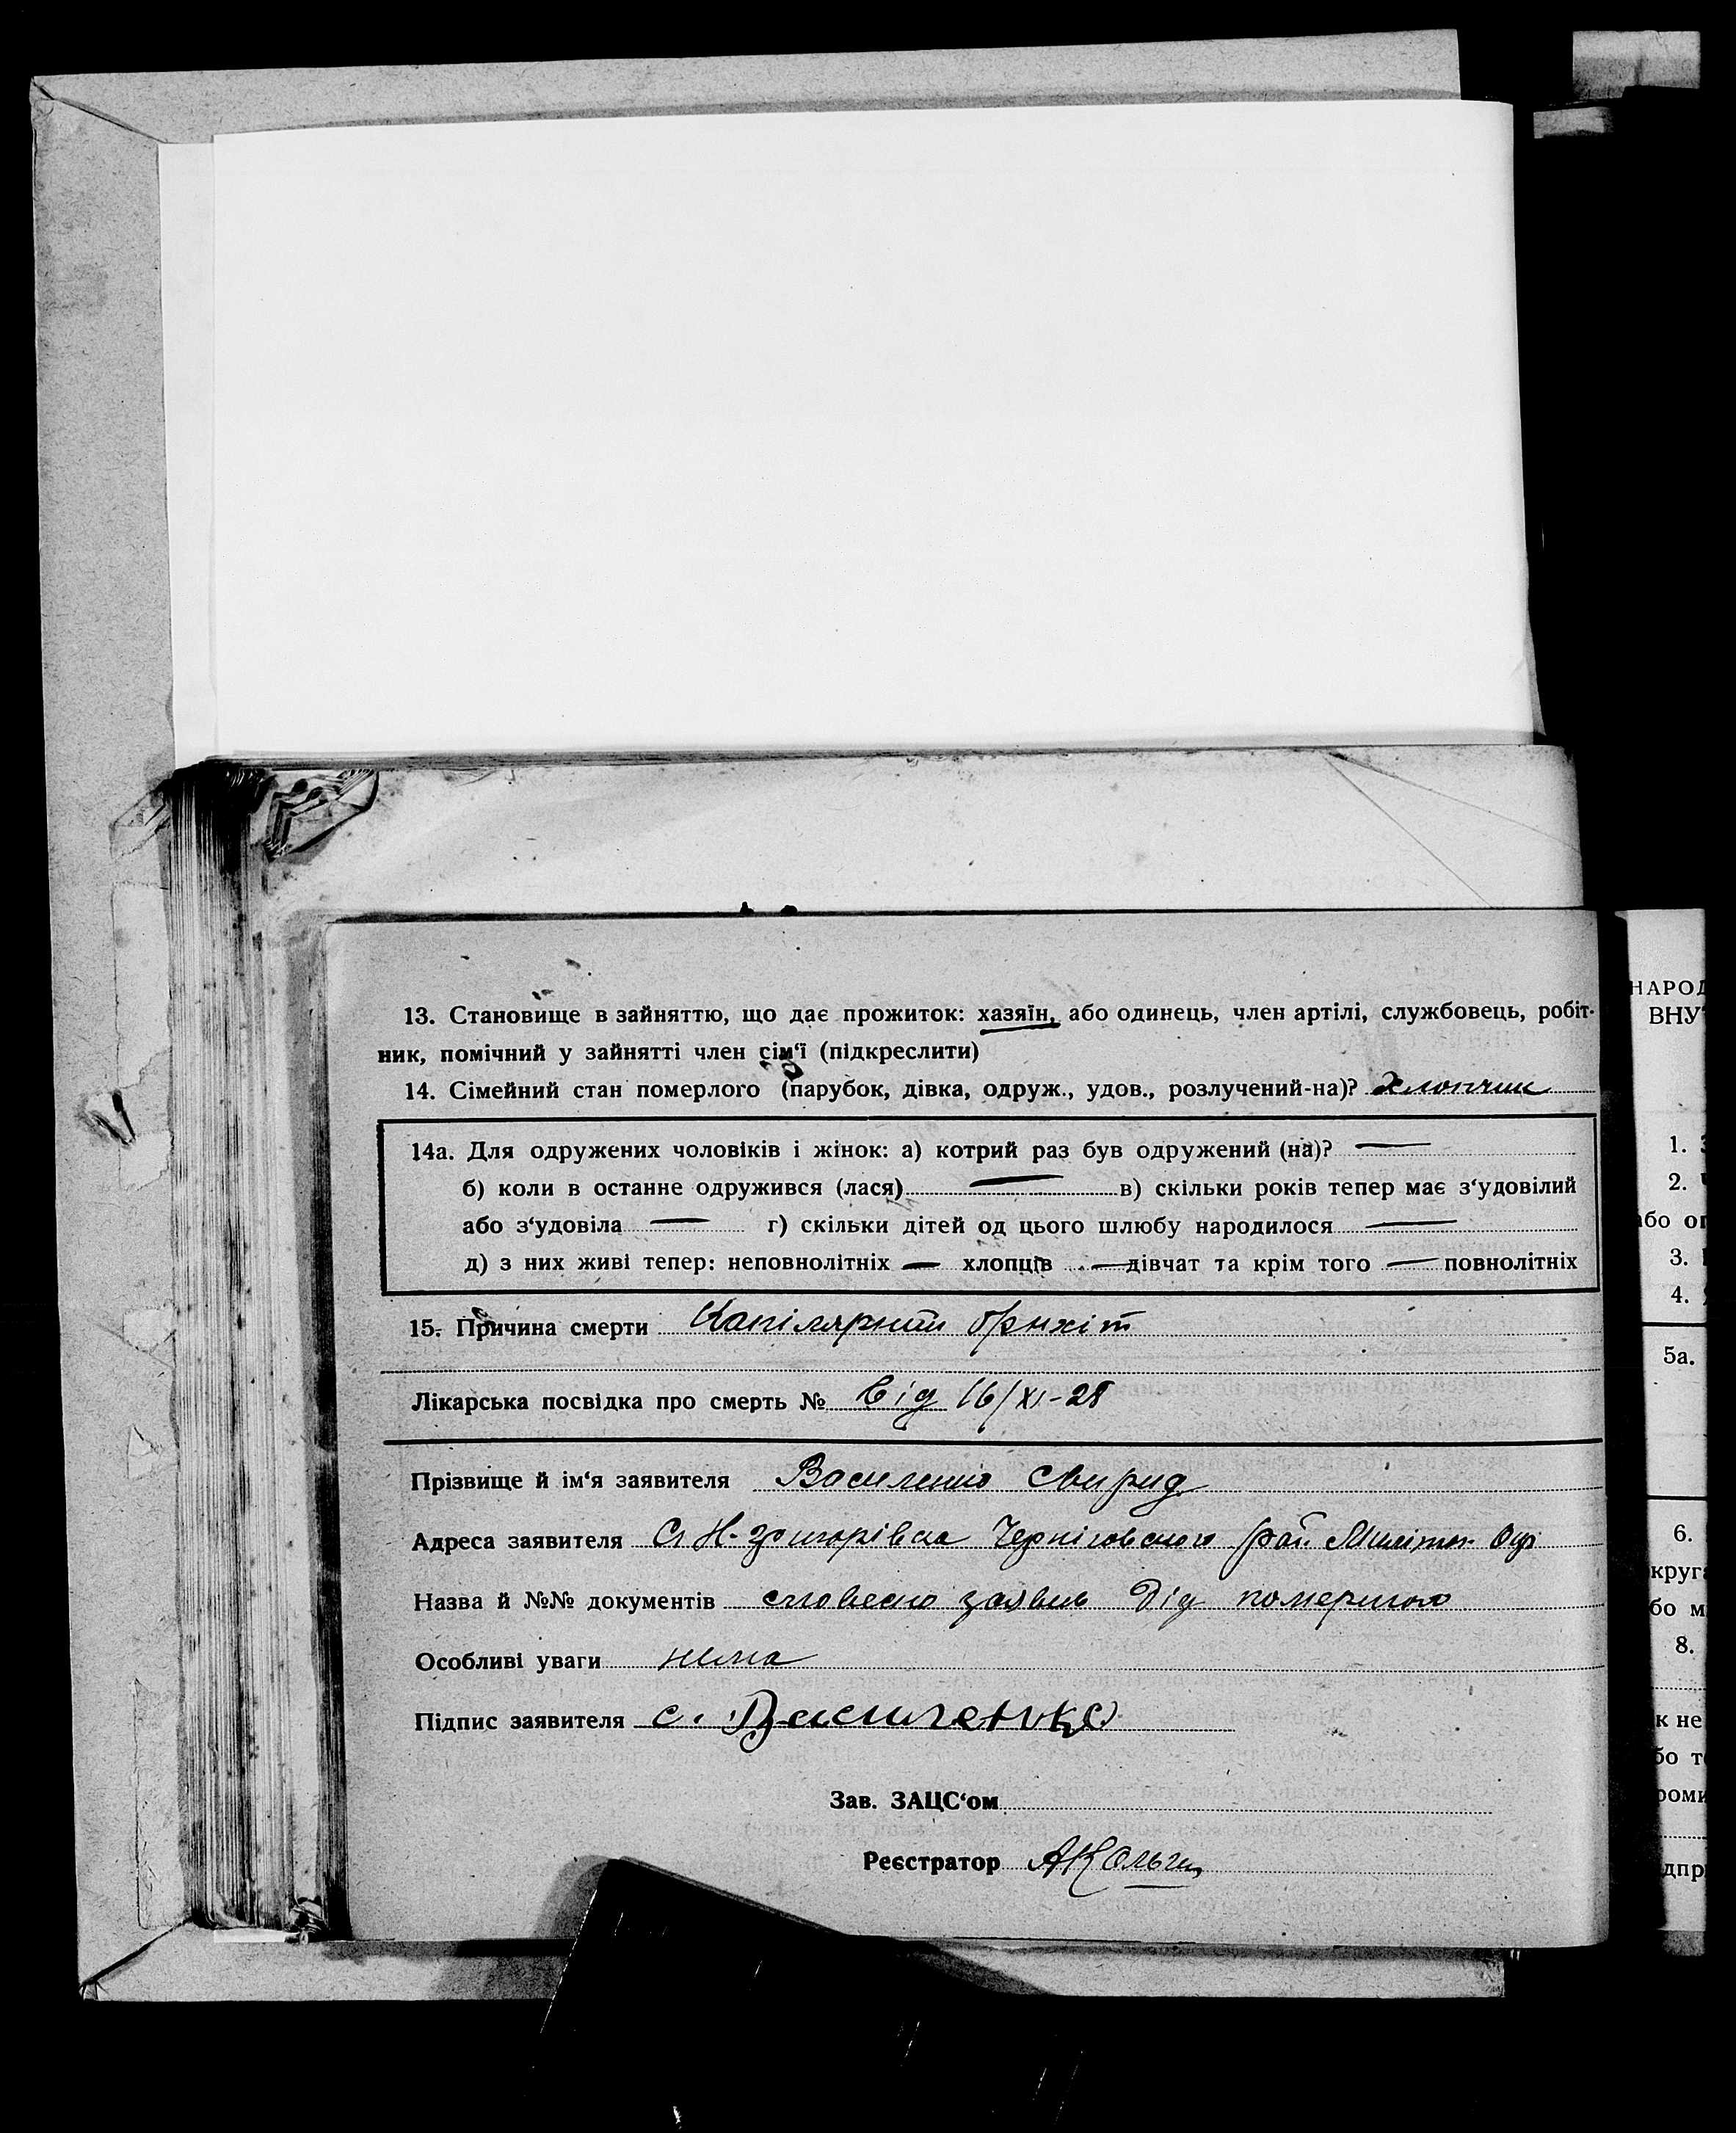 13. Становище в зайняттю, що дає прожиток: хазяїн, або одинець, член артілі, службовець, робіт-
ник, помічний у зайнятті член сім'ї (підкреслити)
14. Сімейний стан померлого (парубок, дівка, одруж., удов., розлучений-на)? Хлопчик
14а. Для одружених чоловіків і жінок: а) котрий раз був одружений (на)? —
б) коли в останнє одружився (лася) — в) скільки років тепер має з'удовілий
або з'удовіла — г) скільки дітей од цього шлюбу народилося —
д) з них живі тепер: неповнолітніх — хлопців — дівчат та крім того — повнолітніх
15. Причина смерти Капілярний брнхіт
Лікарська посвідка про смерть № від 16/XI-28
Прізвище й ім'я заявителя Василенко Свирид
Адреса заявителя С Н-Григорівка Черніговського рай. Меліт. Окр
Назва й №№ документів словесно заявив Дід померлого
Особливі уваги нема
Підпис заявителя С. Василенко
Зав. ЗАЦС'ом
Реєстратор
НАРОД
ВНУ
1. З
2. Ч
або ог
3.
4.
5а.
6.
круга
бо м
8.
к не
бо т
роми
дпр